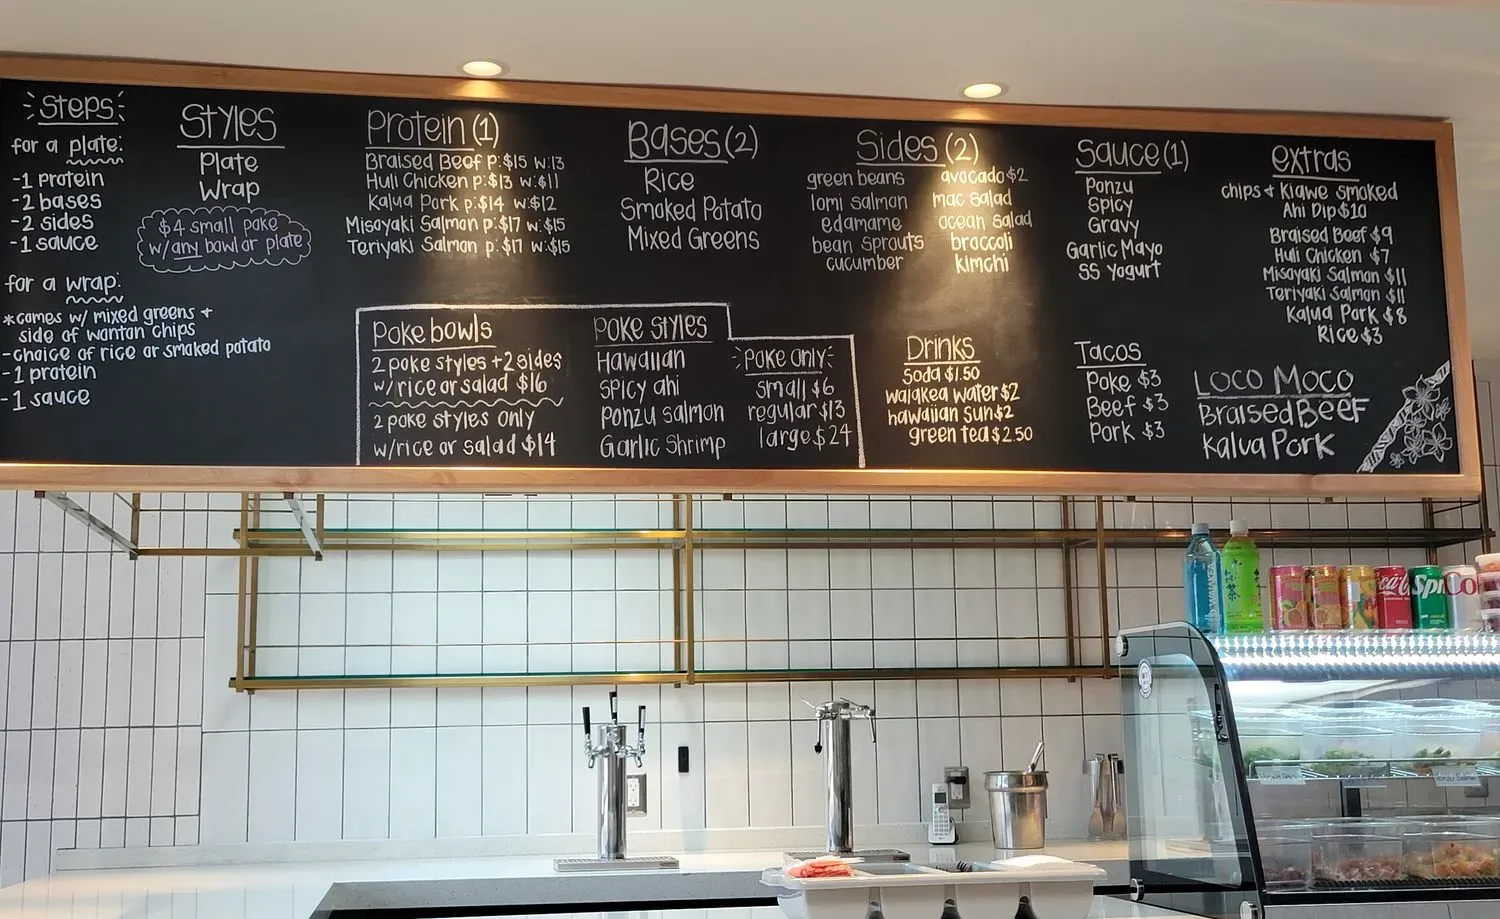 Steps
for a plate:
-1 protein
-2 bases
-2 sides
-1 sauce
for a wrap:
*comes w/ mixed greens +
side of wantan chips
-choice of rice or smoked potato
-1 protein
-1 sauce
Styles
Plate
Wrap
$4 small poke
w/any bowl or plate
Protein (1)
Braised Beef p:$15 w:13
Huli Chicken p:$13 w:$11
Kalua Pork p:$14 w:$12
Misoyaki Salmon p:$17 w:$15
Teriyaki Salmon p:$17 w:$15
Bases (2)
Rice
Smoked Potato
Mixed Greens
Sides (2)
green beans
lomi salmon
edamame
bean sprouts
cucumber
avocado $2
mac salad
ocean salad
broccoli
kimchi
Sauce (1)
Ponzu
Spicy
Gravy
Garlic Mayo
SS Yogurt
extras
chips + Kiawe smoked
Ahi Dip $10
Braised Beef $9
Huli Chicken $7
Misoyaki Salmon $11
Teriyaki Salmon $11
Kalua Pork $8
Rice $3
Poke bowls
2 poke styles + 2 sides
w/rice or salad $16
2 poke styles only
w/rice or salad $14
Poke Styles
Hawaiian
Spicy ahi
Ponzu salmon
Garlic Shrimp
Poke Only
small $6
regular $13
large $24
Drinks
Soda $1.50
waiakea water $2
hawaiian sun $2
green tea $2.50
Tacos
Poke $3
Beef $3
Pork $3
Loco Moco
Braised Beef
Kalua Pork
WAIAKEA
Spri
Co